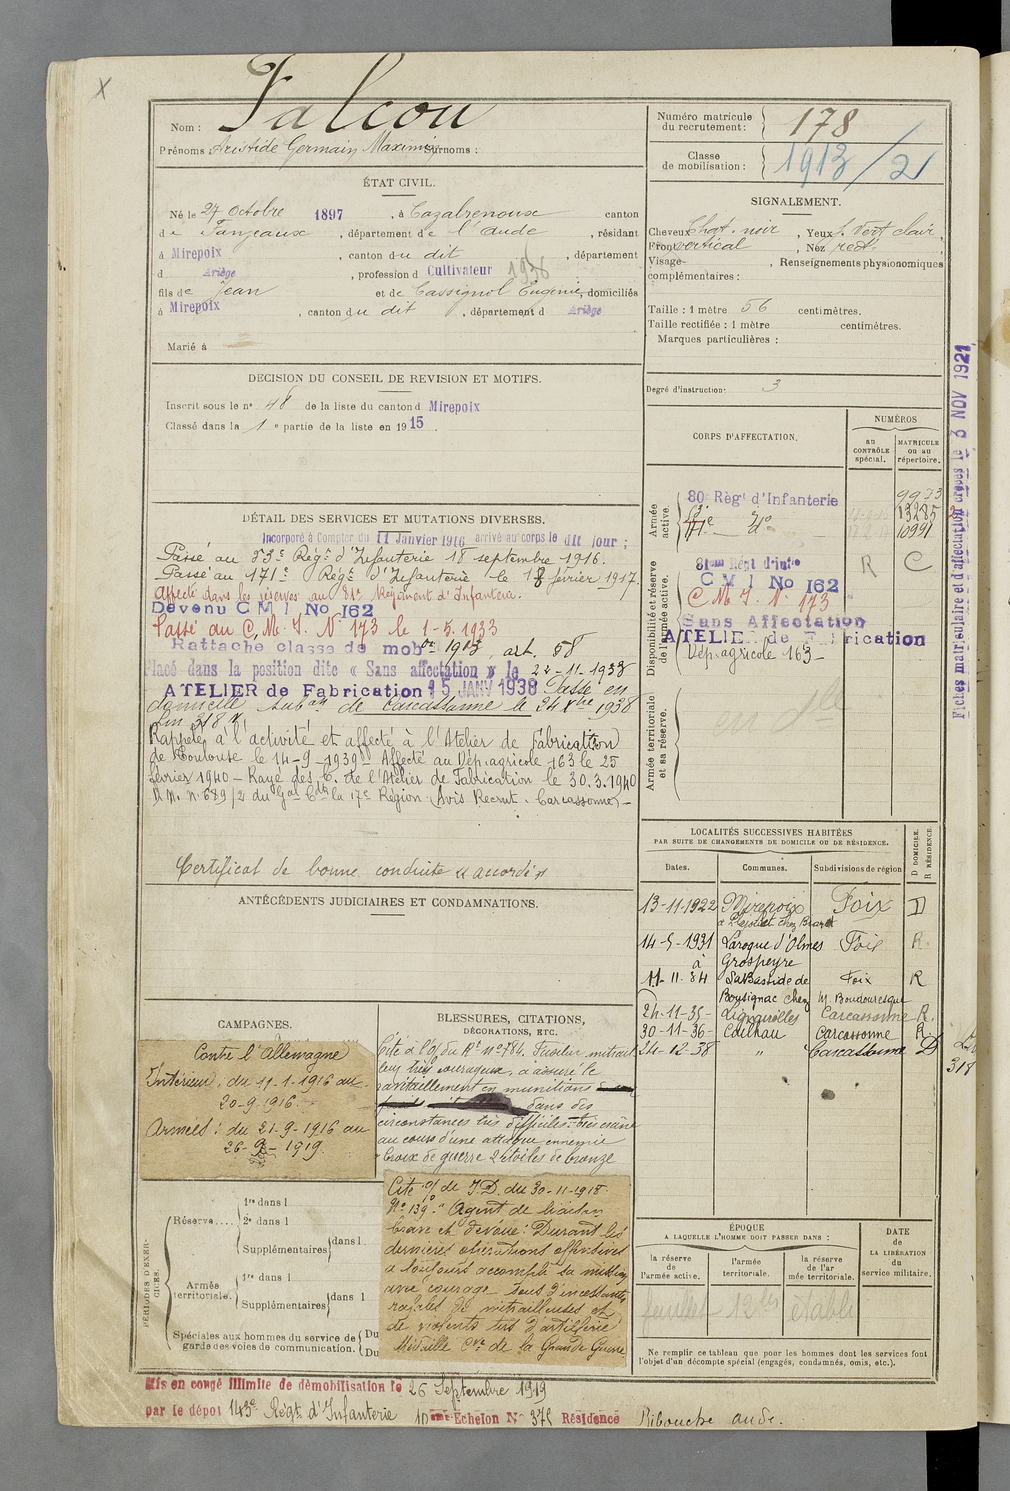 X
Nom : Falcou
Prénoms : Aristide Germain Maximin Surnoms :
Numéro matricule du recrutement : 178
Classe de mobilisation : 1913/2
ÉTAT CIVIL.
Né le 27 Octobre 1897, à Cazalrenoux canton
de Fanjeaux, département de l'Aude, résidant
à Mirepoix, canton du dit, département
d Ariège, profession d Cultivateur 1936
fils de Jean et de Cassignol Eugénie, domiciliés
à Mirepoix, canton du dit, département d Ariège
Marié à
SIGNALEMENT.
Cheveux chat. noir, Yeux f. vert clair,
Front vertical, Nez rect.
Visage , Renseignements physionomiques
complémentaires :
Taille : 1 mètre 56 centimètres.
Taille rectifiée : 1 mètre centimètres.
Marques particulières :
Degré d'instruction : 3
DÉCISION DU CONSEIL DE REVISION ET MOTIFS.
Inscrit sous le n° 48 de la liste du canton d Mirepoix
Classé dans la 1e partie de la liste en 1915.
DÉTAIL DES SERVICES ET MUTATIONS DIVERSES.
Incorporé à Compter du 11 Janvier 1916 arrivé au corps le dit jour ;
Passé au 53e Régt d'Infanterie 18 septembre 1916.
Passé au 171e Régt d'Infanterie le 18 février 1917.
Affecté dans les réserves au 81e Régiment d'Infanterie.
Devenu C M I No 162
Passé au C. M. I. N° 173 le 1-5-1933
Rattaché classe de mobon 1913, art. 58
Placé dans la position dite « Sans affectation » le 22-11-1933
ATELIER de Fabrication 15 JANV 1938 Passé en
domicile subon de Carcassonne le 24 Xbre 1938
Lm 318 R.
Rappelé à l'activité et affecté à l'Atelier de fabrication
de Toulouse le 14-9-1939 - Affecté au Dép. agricole 163 le 25
février 1940 - Rayé des C. de l'Atelier de Fabrication le 30.3.1940
D.M. n° 689/2 du Gal Cdt la 17e Région (Avis Recrut. Carcassonne) -
Certificat de bonne conduite « accordé »
CORPS D'AFFECTATION.
NUMÉROS
au CONTRÔLE spécial.
MATRICULE ou au répertoire.
Armée active.
80e Régt d'Infanterie 9973
53e 13285
171e do 10991
Disponibilité et réserve de l'armée active.
81eme Régt d'inftie R C
C M I No 162
C. M. I. N° 173
Sans Affectation
ATELIER de Fabrication
Dép. agricole 163 -
Armée territoriale et sa réserve.
Fiches matriculaire et d'affectation créées le 3 NOV 1921
ANTÉCÉDENTS JUDICIAIRES ET CONDAMNATIONS.
LOCALITÉS SUCCESSIVES HABITÉES
PAR SUITE DE CHANGEMENTS DE DOMICILE OU DE RÉSIDENCE.
Dates. Communes. Subdivisions de région D DOMICILE. R RÉSIDENCE.
13-11-1922 Mirepoix Foix D
14-5-1931 Laroque d'Olmes Foix R.
à Grospeyre
11-11-34 La Bastide de Foix R
Bousignac chez M. Boudouresque
24-11-35- Lignairolles Carcassonne R.
30-11-36- Cailhau Carcassonne R.
24-12-38 " Carcassonne D
318
CAMPAGNES.
Contre l'Allemagne
Intérieur : du 11-1-1916 au
20-9-1916.
Armées : du 21-9-1916 au
26-9-1919.
BLESSURES, CITATIONS,
DÉCORATIONS, ETC.
Cité à l'o/ du Rt n° 784. Fusilier mitrail
leur très courageux, a assuré le
ravitaillement en munitions
dans des
circonstances très difficiles. très crâne
au cours d'une attaque ennemie
Croix de guerre 2 étoiles de bronze
Cité o/ de I.D. du 30-11-1918.
N° 139. "Agent de liaison
brave et dévoué : Durant les
dernières opérations offensives
a toujours accompli sa mission
avec courage sous d'incessantes
rafales de mitrailleuses et
de violents tirs d'artillerie
Médaille Cve de la Grande Guerre
PÉRIODES D'EXERCICES.
Réserve....
1re dans l
2e dans l
Supplémentaires dans l
Armée territoriale.
1re dans l
Supplémentaires dans l
Spéciales aux hommes du service de garde des voies de communication. Du Du
ÉPOQUE
A LAQUELLE L'HOMME DOIT PASSER DANS :
la réserve de l'armée active.
l'armée territoriale.
la réserve de l'armée territoriale.
DATE de LA LIBÉRATION du service militaire.
Ne remplir ce tableau que pour les hommes dont les services font
l'objet d'un décompte spécial (engagés, condamnés, omis, etc.).
Mis en congé illimité de démobilisation le 26 Septembre 1919
par le dépôt 143e Régt d'Infanterie 10eme Echelon N° 375 Résidence Ribouisse aude.